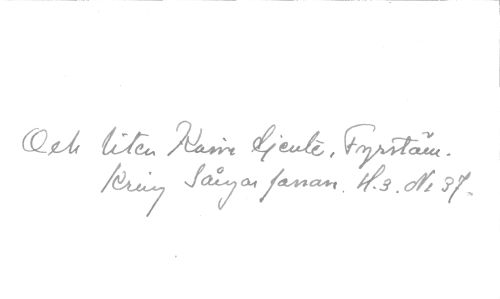 Och liten Karin tjente, Fyrstäm.
Kring Sångarfanan. H.3. No 37.